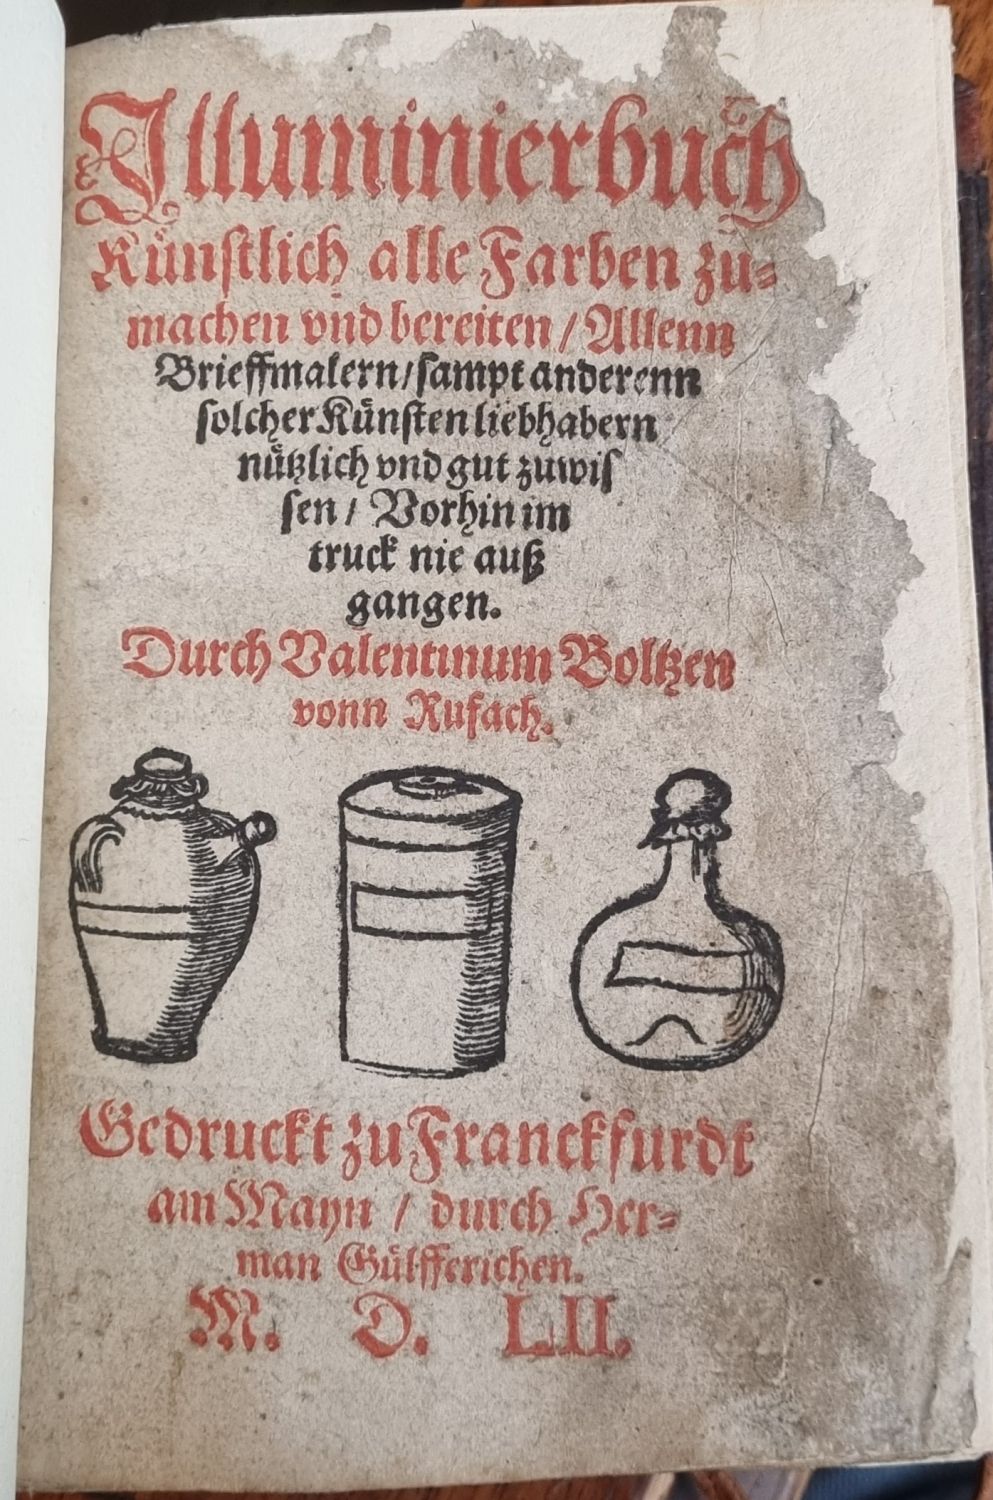 Illuminierbuch
Künstlich alle Farben zu-
machen vnd bereiten / Allenn
Brieffmalern / sampt anderenn
solcher Künsten liebhabern
nützlich vnd gut zuwis
sen / Vorhin im
truck nie auß
gangen.
Durch Valentinum Boltzen
vonn Rufach.
Gedruckt zu Franckfurdt
am Mayn / durch Her-
man Gülfferichen.
M. D. LII.